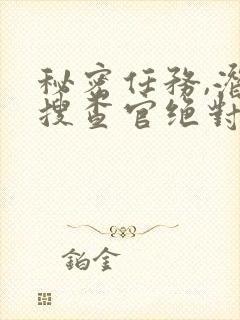 秘密任務,潛
搜查官绝對
鉑金